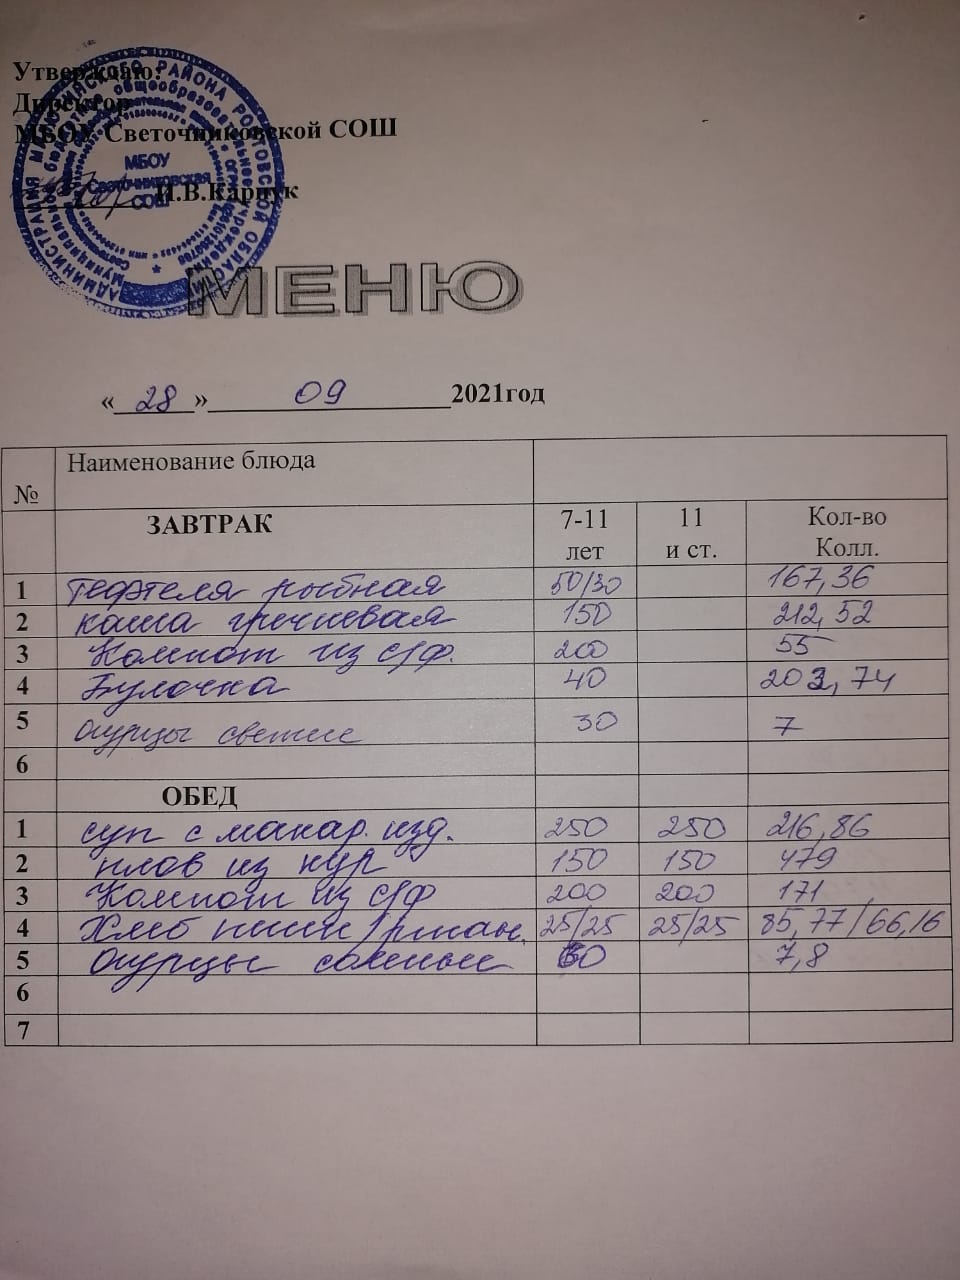 Утверждаю:
Директор
МБОУ Светочниковской СОШ
И.В.Карпук
АДМИНИСТРАЦИЯ РАЙОНА РОСТОВСКОЙ ОБЛАСТИ
МБОУ
Светочниковская
СОШ
МЕНЮ
« 28 » 09 2021год
№ Наименование блюда
ЗАВТРАК 7-11 лет 11 и ст. Кол-во Колл.
1 тефтеля рыбная 50/30 167,36
2 каша гречневая 150 212,52
3 Компот из с/ф. 200 55
4 Булочка 40 203,74
5 огурцы свежие 30 7
6
ОБЕД
1 суп с макар. изд. 250 250 216,86
2 плов из кур 150 150 479
3 Компот из с/ф 200 200 171
4 Хлеб пшен/ржан. 25/25 25/25 85,77/66,16
5 огурцы соленые 60 7,8
6
7